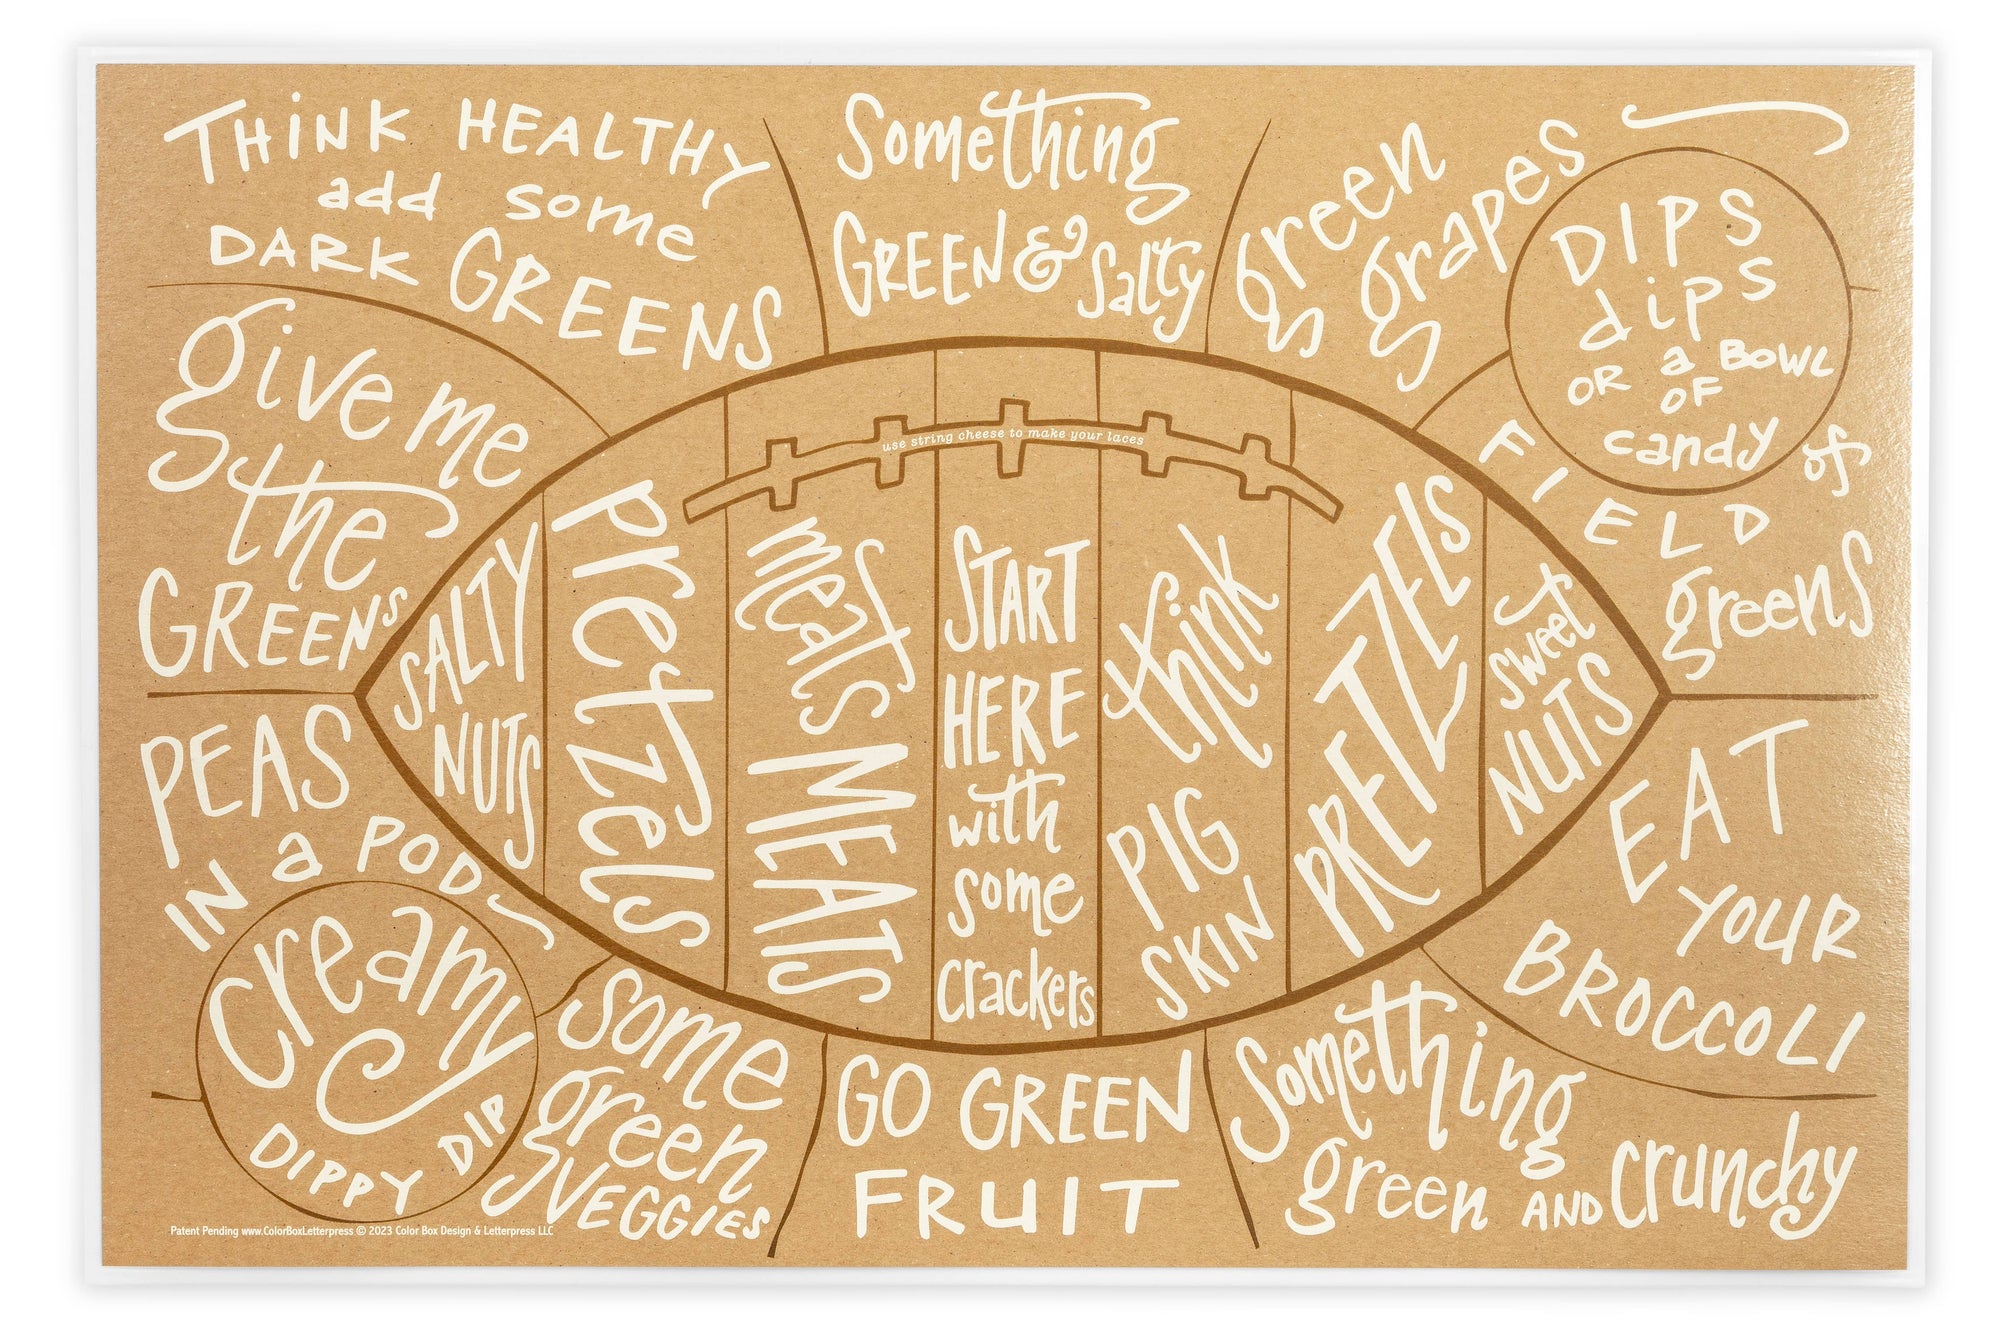 THINK HEALTHY
add some
DARK GREENS
Something
GREEN & Salty
green
grapes
DIPS
dips
OR a BOWL
OF
candy
give me
the
GREENS
use string cheese to make your laces
FIELD of
greens
SALTY
NUTS
Pretzels
meats
MEATS
START
HERE
with
some
crackers
think
PIG
SKIN
PRETZELS
sweet
NUTS
PEAS
IN a POD
EAT
YOUR
BROCCOLI
Creamy
DIPPY DIP
some
green
VEGGIES
GO GREEN
FRUIT
Something
green AND crunchy
Patent Pending www.ColorBoxLetterpress © 2023 Color Box Design & Letterpress LLC